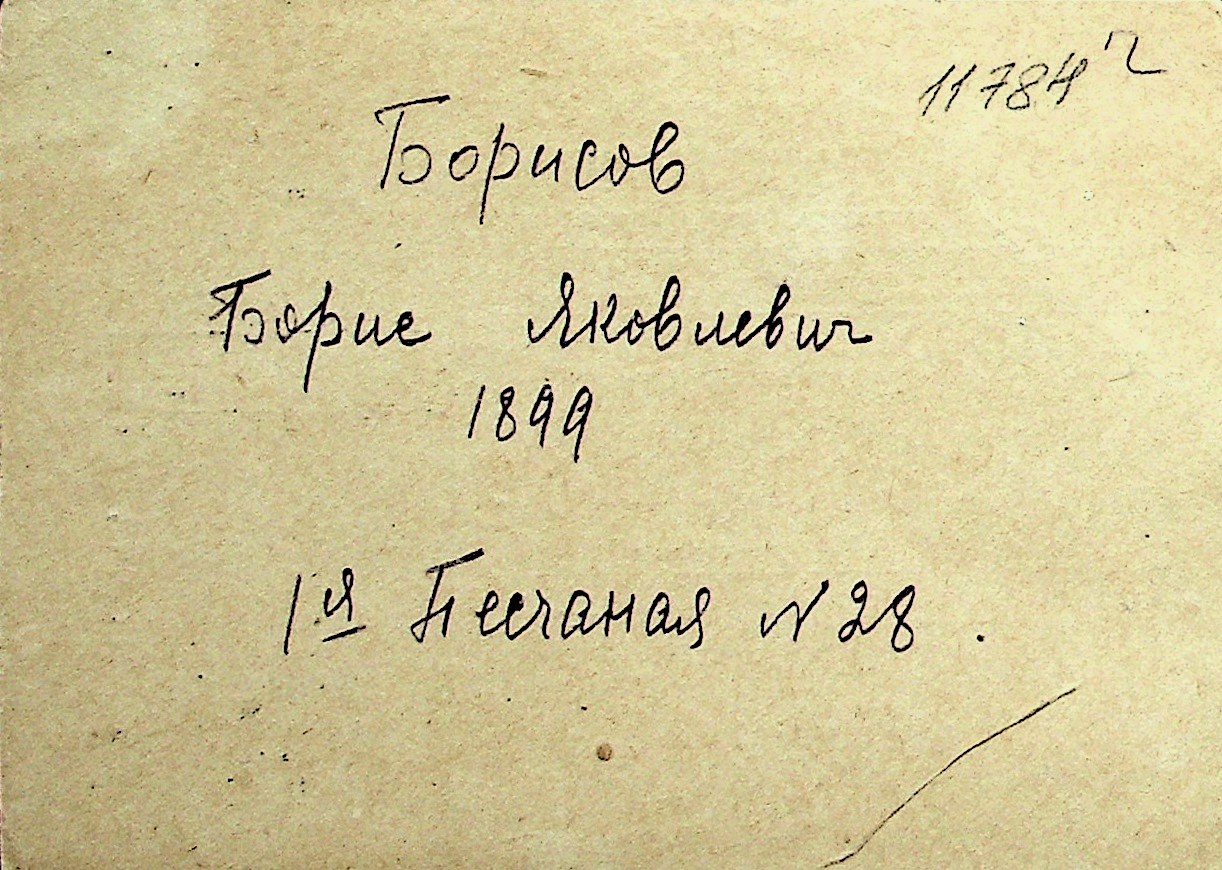 11784
Борисов
Борис Яковлевич
1899
1я Песчаная N 28.